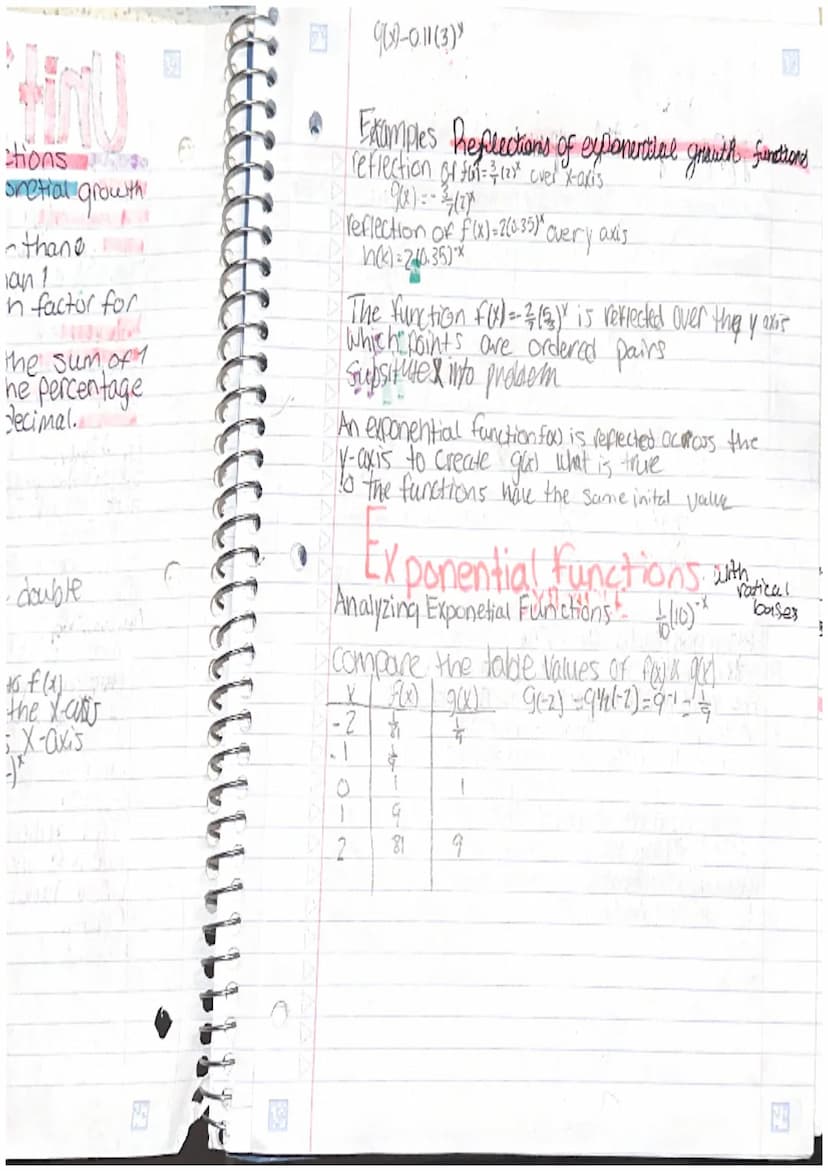 Unit
ctions
onetial growth
r thano
han 1
h factor for
the sum of 1
he percentage
decimal.
double
to f(x)
the x-axis
; X-axis
-)ˣ
g(x)-0.11(3)ˣ
Examples Reflections of exponential growth functions
reflection of f(x)=3/7(2)ˣ over x-axis
g(x)=-3/7(2)ˣ
reflection of f(x)=2(0.35)ˣ over y axis
h(x)=2(0.35)⁻ˣ
The function f(x)=-2/7(5/3)ˣ is reflected over the y axis
which points are ordered pairs
Subsitute x into problem
An exponential function f(x) is reflected across the
y-axis to create g(x) what is true
The functions have the same inital value
Exponential functions with
ratical
bases
Analyzing Exponetial Functions 1/10(10)⁻ˣ
compare the table values of f(x) & g(x)
x f(x) g(x) g(-2)=9½(-2)=9⁻¹=1/9
-2 1/81 1/9
-1 1/9
0 1 1
1 9
2 81 9